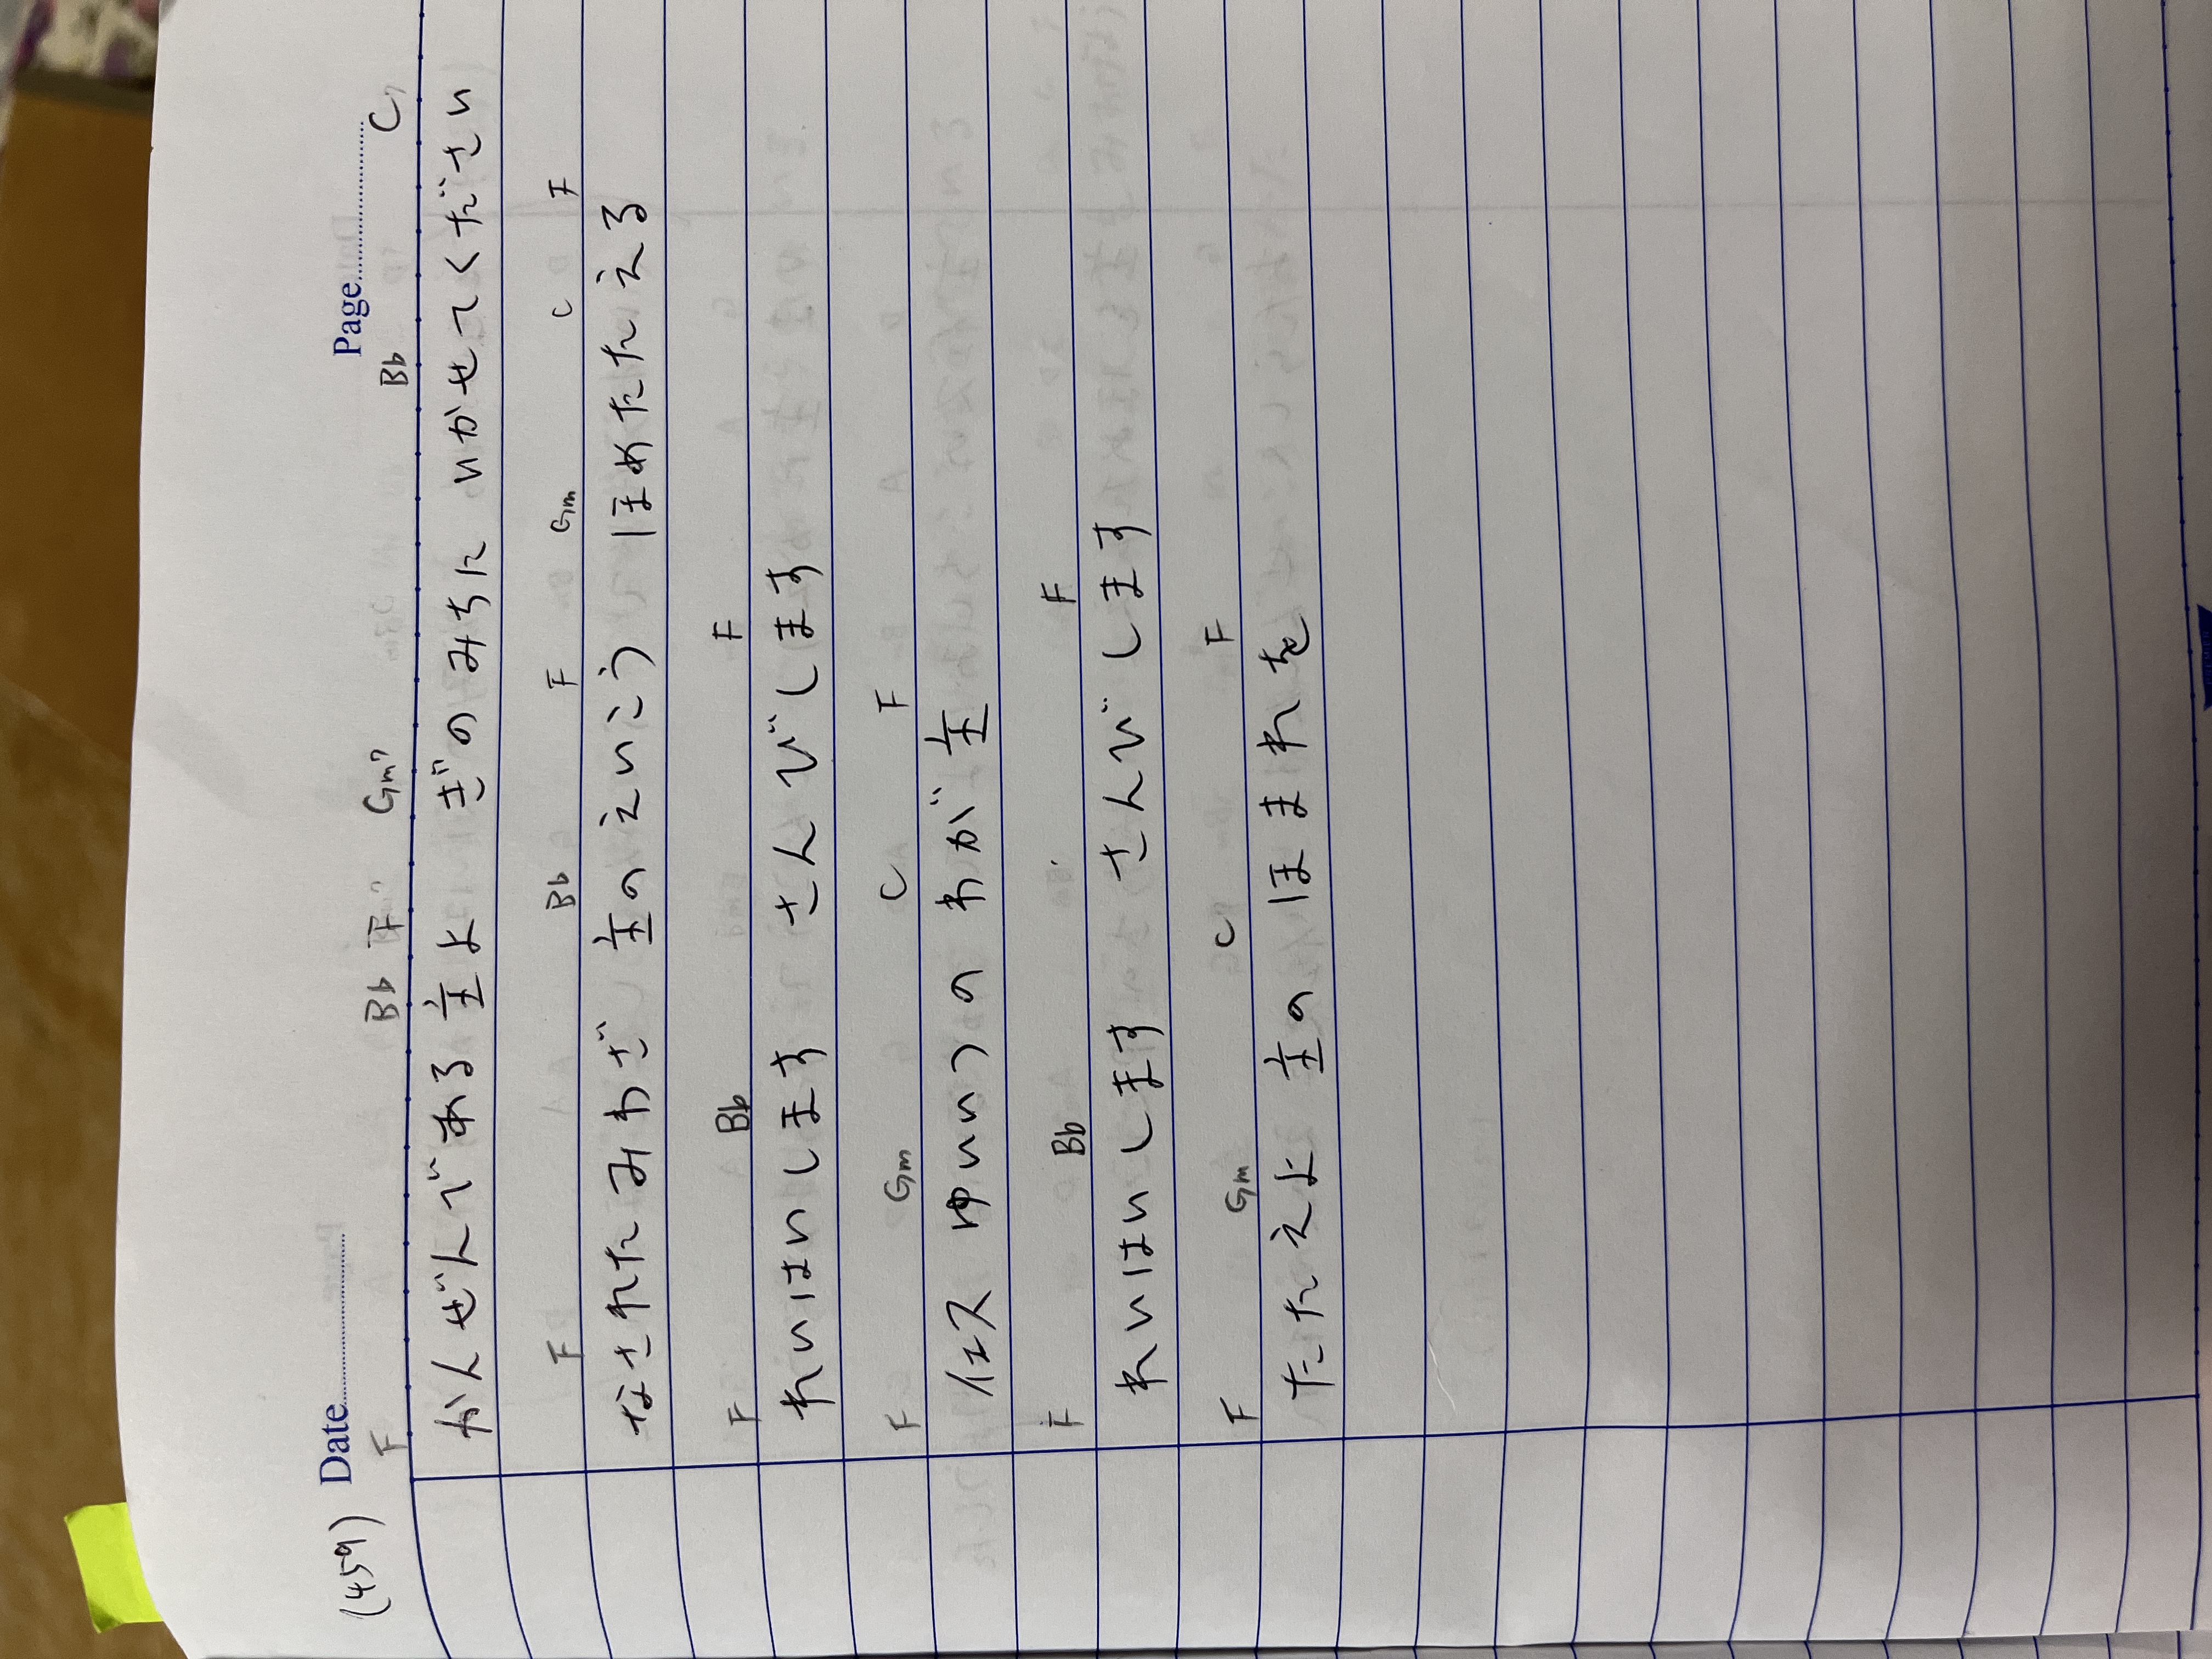 (459) Date Page
F Bb F Gm7 Bb C7
かんぜんである 主よ ぎのみちに いかせてください
F Bb F Gm C F
なされたみわざ 主のえいこう ほめたたえる
F Bb F
れいはいします さんびします
F Gm C F
イエス ゆいいつの わが主
F Bb F
れいはいします さんびします
F Gm C F
たたえよ 主のほまれを